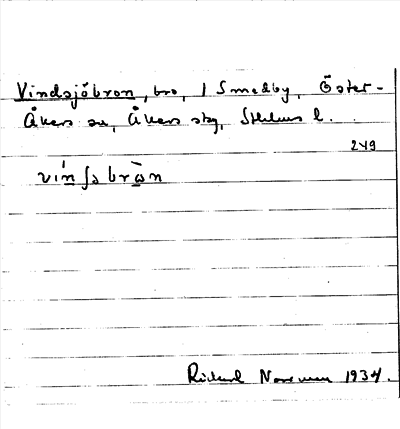 Vindsjöbron, bro, i Smedby, Öster-
Åkers sn, Åkers skg, Sthlms l.
249
vinʃɔbrɷn
Rickard Noreman 1934.